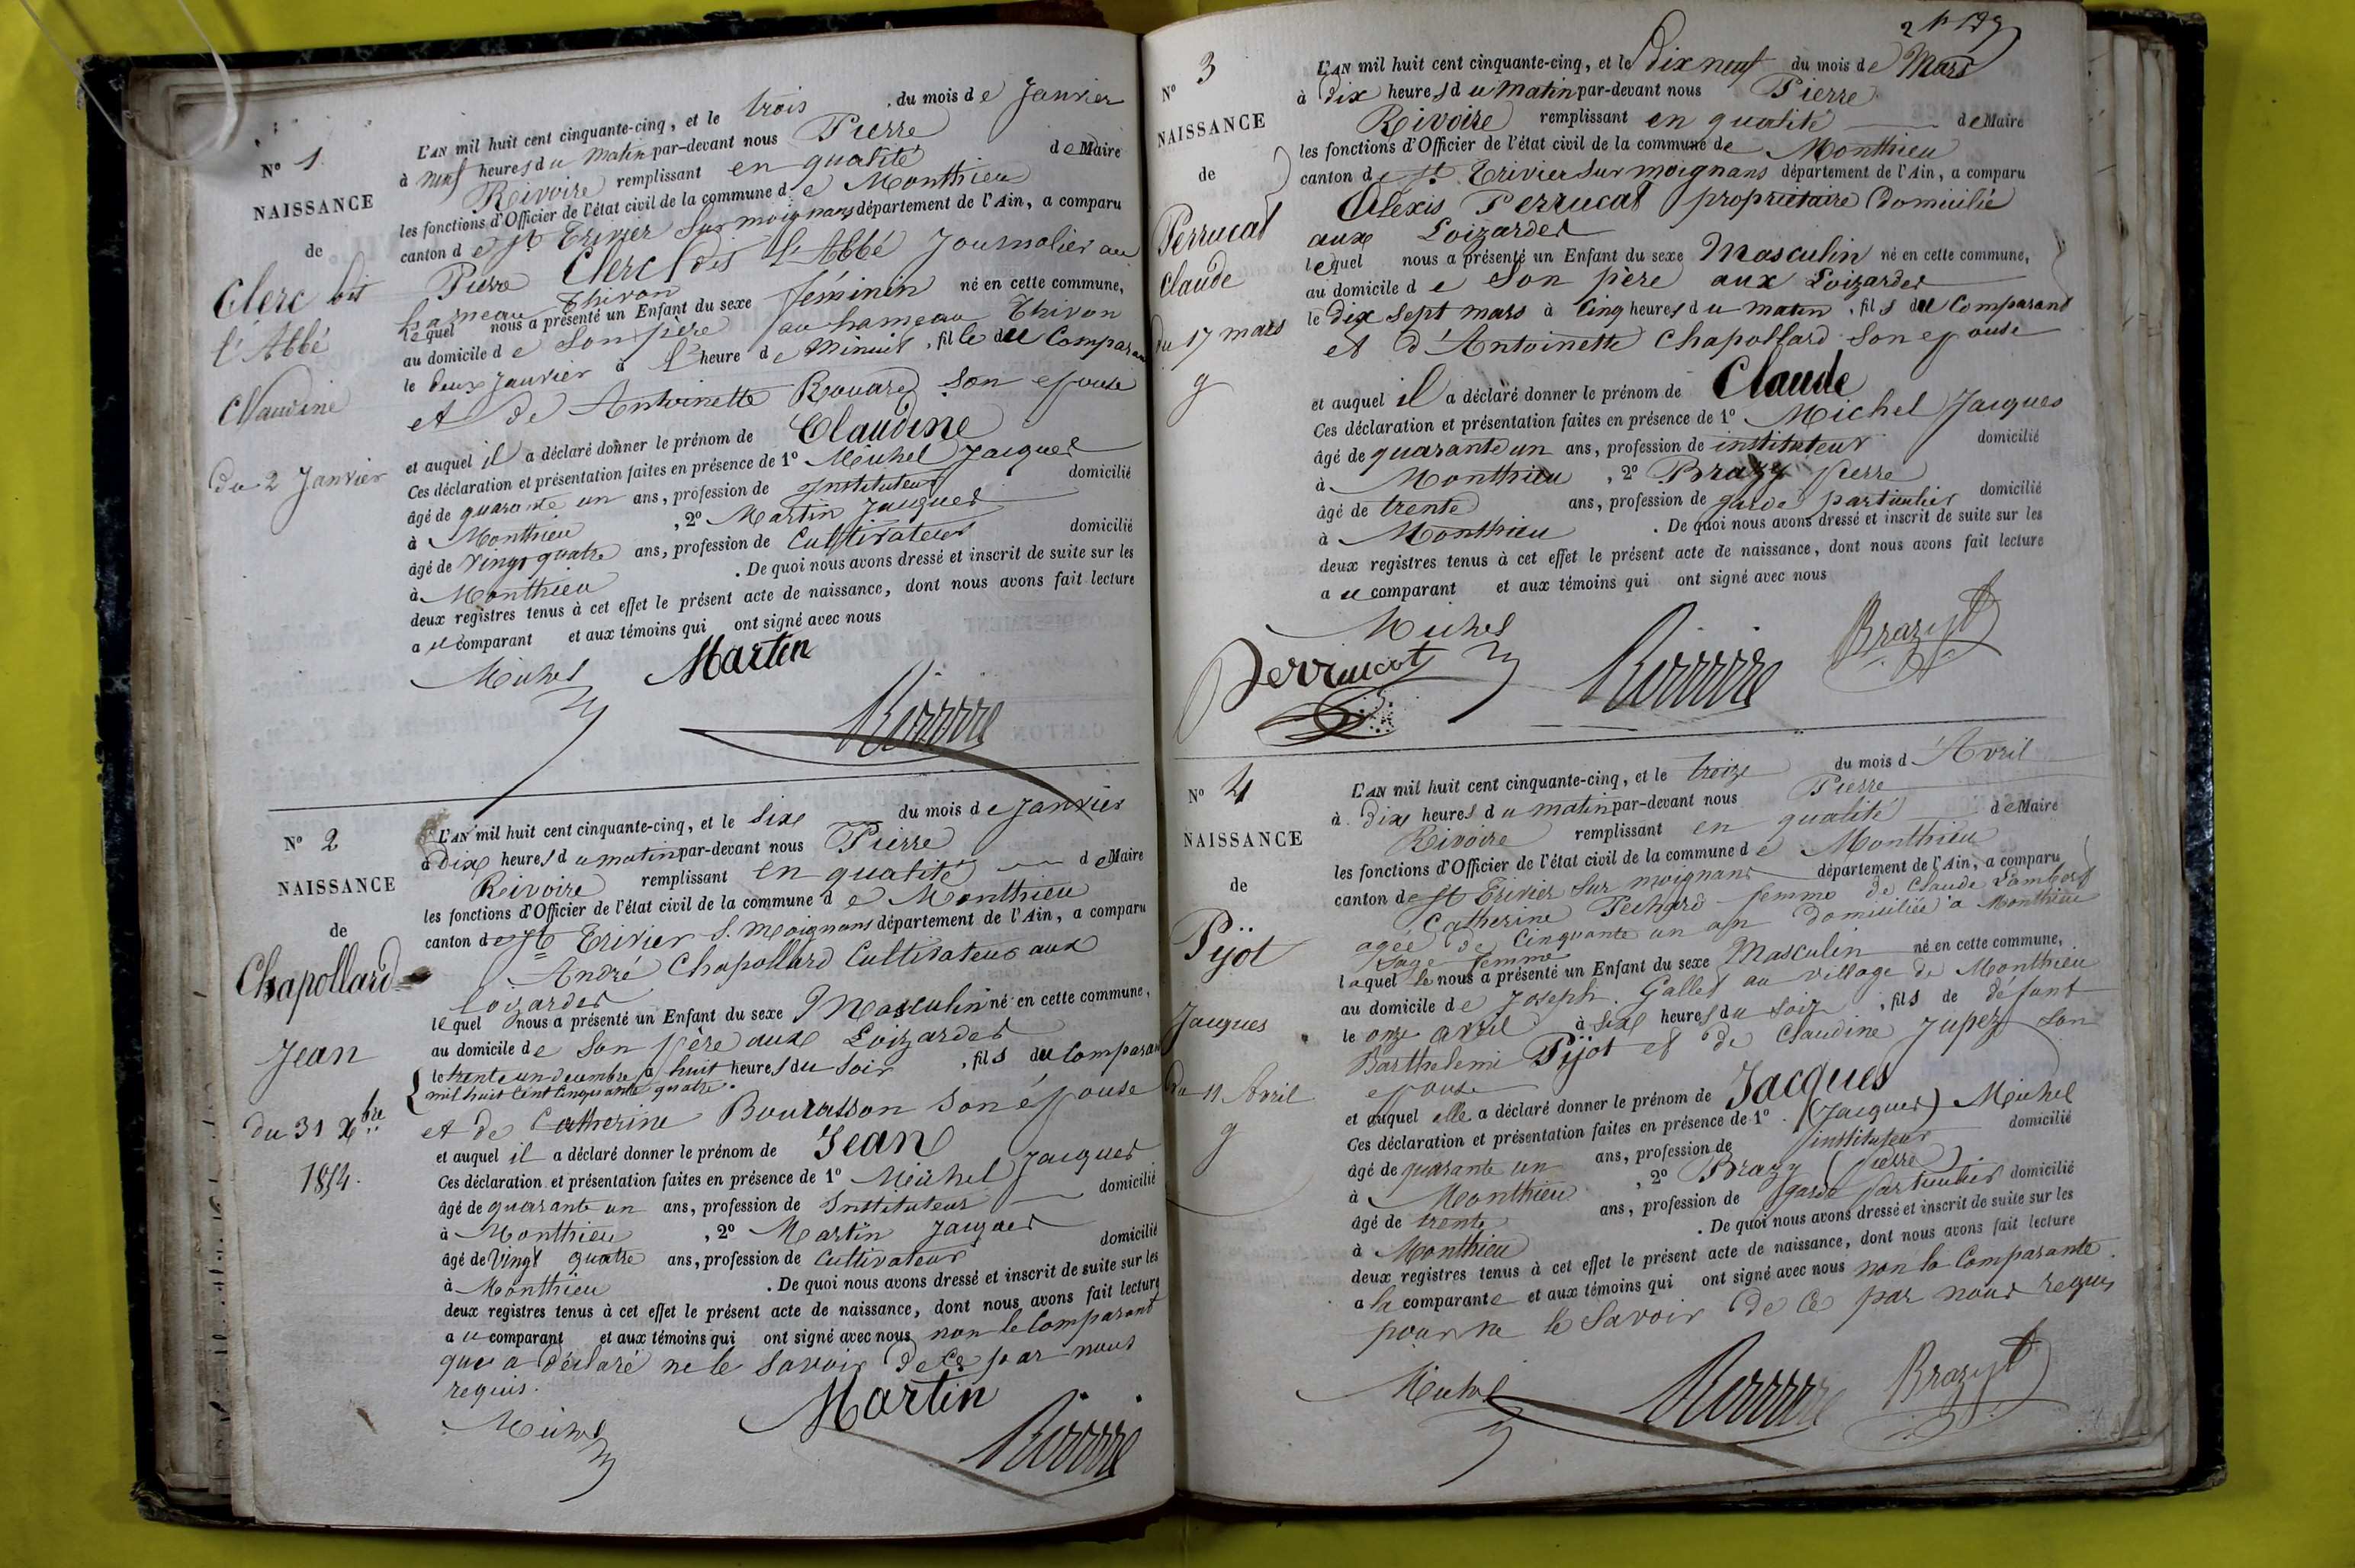 N° 1
NAISSANCE
de
Clerc dit
l'Abbé
Claudine
du 2 Janvier
L'AN mil huit cent cinquante-cinq, et le trois du mois de Janvier
à neuf heures du matin par-devant nous Pierre
Rivoire remplissant en qualité de Maire
les fonctions d'Officier de l'état civil de la commune de Monthieu
canton de St Trivier sur moignans département de l'Ain, a comparu
Pierre Clerc dit l'Abbé Journalier au
hameau Thivon
lequel nous a présenté un Enfant du sexe féminin né en cette commune,
au domicile de son père au hameau Thivon
le deux Janvier à l'heure de Minuit, fille du Comparant
et de Antoinette Rouard son épouse
et auquel il a déclaré donner le prénom de Claudine
Ces déclaration et présentation faites en présence de 1° Michel Jacques
âgé de quarante un ans, profession de Instituteur domicilié
à Monthieu, 2° Martin Jacques
âgé de vingt quatre ans, profession de Cultivateur domicilié
à Monthieu. De quoi nous avons dressé et inscrit de suite sur les
deux registres tenus à cet effet le présent acte de naissance, dont nous avons fait lecture
au comparant et aux témoins qui ont signé avec nous
Michel Martin
Rivoire
N° 2
NAISSANCE
de
Chapollard
Jean
du 31 Xbre
1854.
L'AN mil huit cent cinquante-cinq, et le six du mois de Janvier
à dix heures du matin par-devant nous Pierre
Rivoire remplissant en qualité de Maire
les fonctions d'Officier de l'état civil de la commune de Monthieu
canton de St Trivier s. moignans département de l'Ain, a comparu
André Chapollard Cultivateur aux
loizardes
lequel nous a présenté un Enfant du sexe Masculin né en cette commune,
au domicile de son père aux Loizardes
le trente un decembre à huit heures du soir, fils du Comparant
mil huit cent cinquante quatre.
et de Catherine Bourasson son épouse
et auquel il a déclaré donner le prénom de Jean
Ces déclaration et présentation faites en présence de 1° Michel Jacques
âgé de quarante un ans, profession de Instituteur domicilié
à Monthieu, 2° Martin Jacques
âgé de Vingt quatre ans, profession de Cultivateur domicilié
à Monthieu. De quoi nous avons dressé et inscrit de suite sur les
deux registres tenus à cet effet le présent acte de naissance, dont nous avons fait lecture
au comparant et aux témoins qui ont signé avec nous non le Comparant
qui a déclaré ne le savoir de ce par nous
requis.
Michel Martin
Rivoire
N° 3
NAISSANCE
de
Perrucat
Claude
du 17 mars
g
L'AN mil huit cent cinquante-cinq, et le dix neuf du mois de Mars
à dix heures du Matin par-devant nous Pierre
Rivoire remplissant en qualité de Maire
les fonctions d'Officier de l'état civil de la commune de Monthieu
canton de St Trivier sur moignans département de l'Ain, a comparu
Alexis Perrucat propriétaire domicilié
aux Loizardes
lequel nous a présenté un Enfant du sexe Masculin né en cette commune,
au domicile de son père aux Loizardes
le dix sept mars à cinq heures du matin, fils du Comparant
et d'Antoinette Chapollard son epouse
et auquel il a déclaré donner le prénom de Claude
Ces déclaration et présentation faites en présence de 1° Michel Jacques
âgé de quarante un ans, profession de instituteur domicilié
à Monthieu, 2° Brazy Pierre
âgé de trente ans, profession de garde particulier domicilié
à Monthieu. De quoi nous avons dressé et inscrit de suite sur les
deux registres tenus à cet effet le présent acte de naissance, dont nous avons fait lecture
au comparant et aux témoins qui ont signé avec nous
Michel
Perrucat Rivoire Brazy
N° 4
NAISSANCE
de
Pijot
Jacques
du 11 Avril
g
L'AN mil huit cent cinquante-cinq, et le treize du mois d'Avril
à dix heures du matin par-devant nous Pierre
Rivoire remplissant en qualité de Maire
les fonctions d'Officier de l'état civil de la commune de Monthieu
canton de St Trivier sur moignans département de l'Ain, a comparu
Catherine Pechard femme de Claude Lambert
agée de Cinquante un an domiciliée a Monthieu
Sage femme
laquelle nous a présenté un Enfant du sexe Masculin né en cette commune,
au domicile de Joseph Gallet au village de Monthieu
le onze avril à six heures du soir, fils de défunt
Barthelemi Pijot et de Claudine Jupez son
epouse
et auquel elle a déclaré donner le prénom de Jacques
Ces déclaration et présentation faites en présence de 1° (Jacques) Michel
âgé de quarante un ans, profession de instituteur domicilié
à Monthieu, 2° Brazy (pierre)
âgé de trente ans, profession de garde particulier domicilié
à Monthieu. De quoi nous avons dressé et inscrit de suite sur les
deux registres tenus à cet effet le présent acte de naissance, dont nous avons fait lecture
a la comparante et aux témoins qui ont signé avec nous non la Comparante
pour ne le Savoir de ce par nous requis
Michel Rivoire Brazy